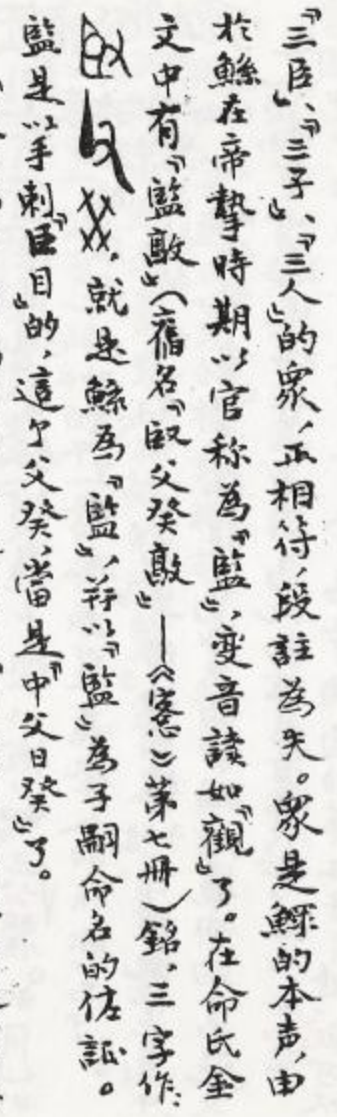 『三臣』、『三子』、『三人』的眾，正相符，段註為失。眾是鯀的本声，由
於鯀在帝摯時期以官称為『監』，变音讀如『觀』了。在命氏金
文中有『監敢』（舊名『臤父癸敢』——《愙》第七冊）銘，三字作：
，就是鯀為『監』，并以『監』為子嗣命名的佐証。
監是以手刺『臣目』的，這个父癸，當是『中父日癸』了。